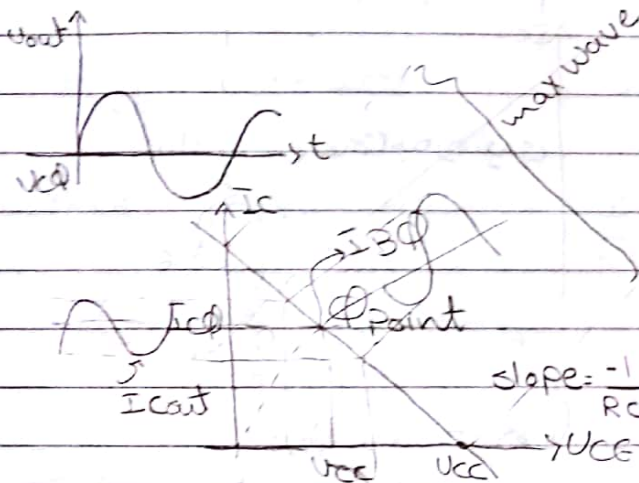 vout
max wave
t
VCQ
IC
IBQ
ICQ
Q Point
ICout
slope = -1/RC
VCC
VCE